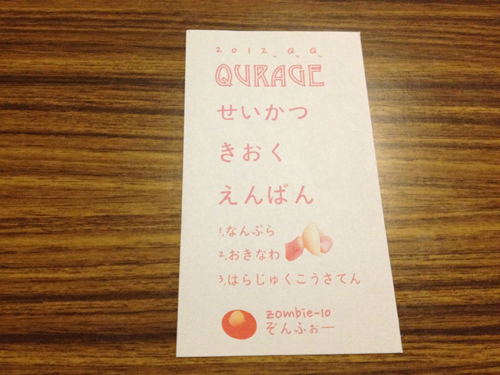 2012.Q.Q.
QURAGE
せいかつ
きおく
えんばん
1,なんぷら
2,おきなわ
3,はらじゅくこうさてん
zombie-10
ぞんふぉー